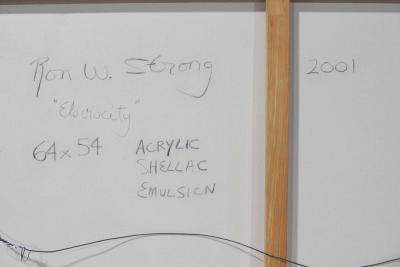 Ron W. Strong
2001
"Elecrocity"
64 x 54
ACRYLIC
SHELLAC
EMULSION